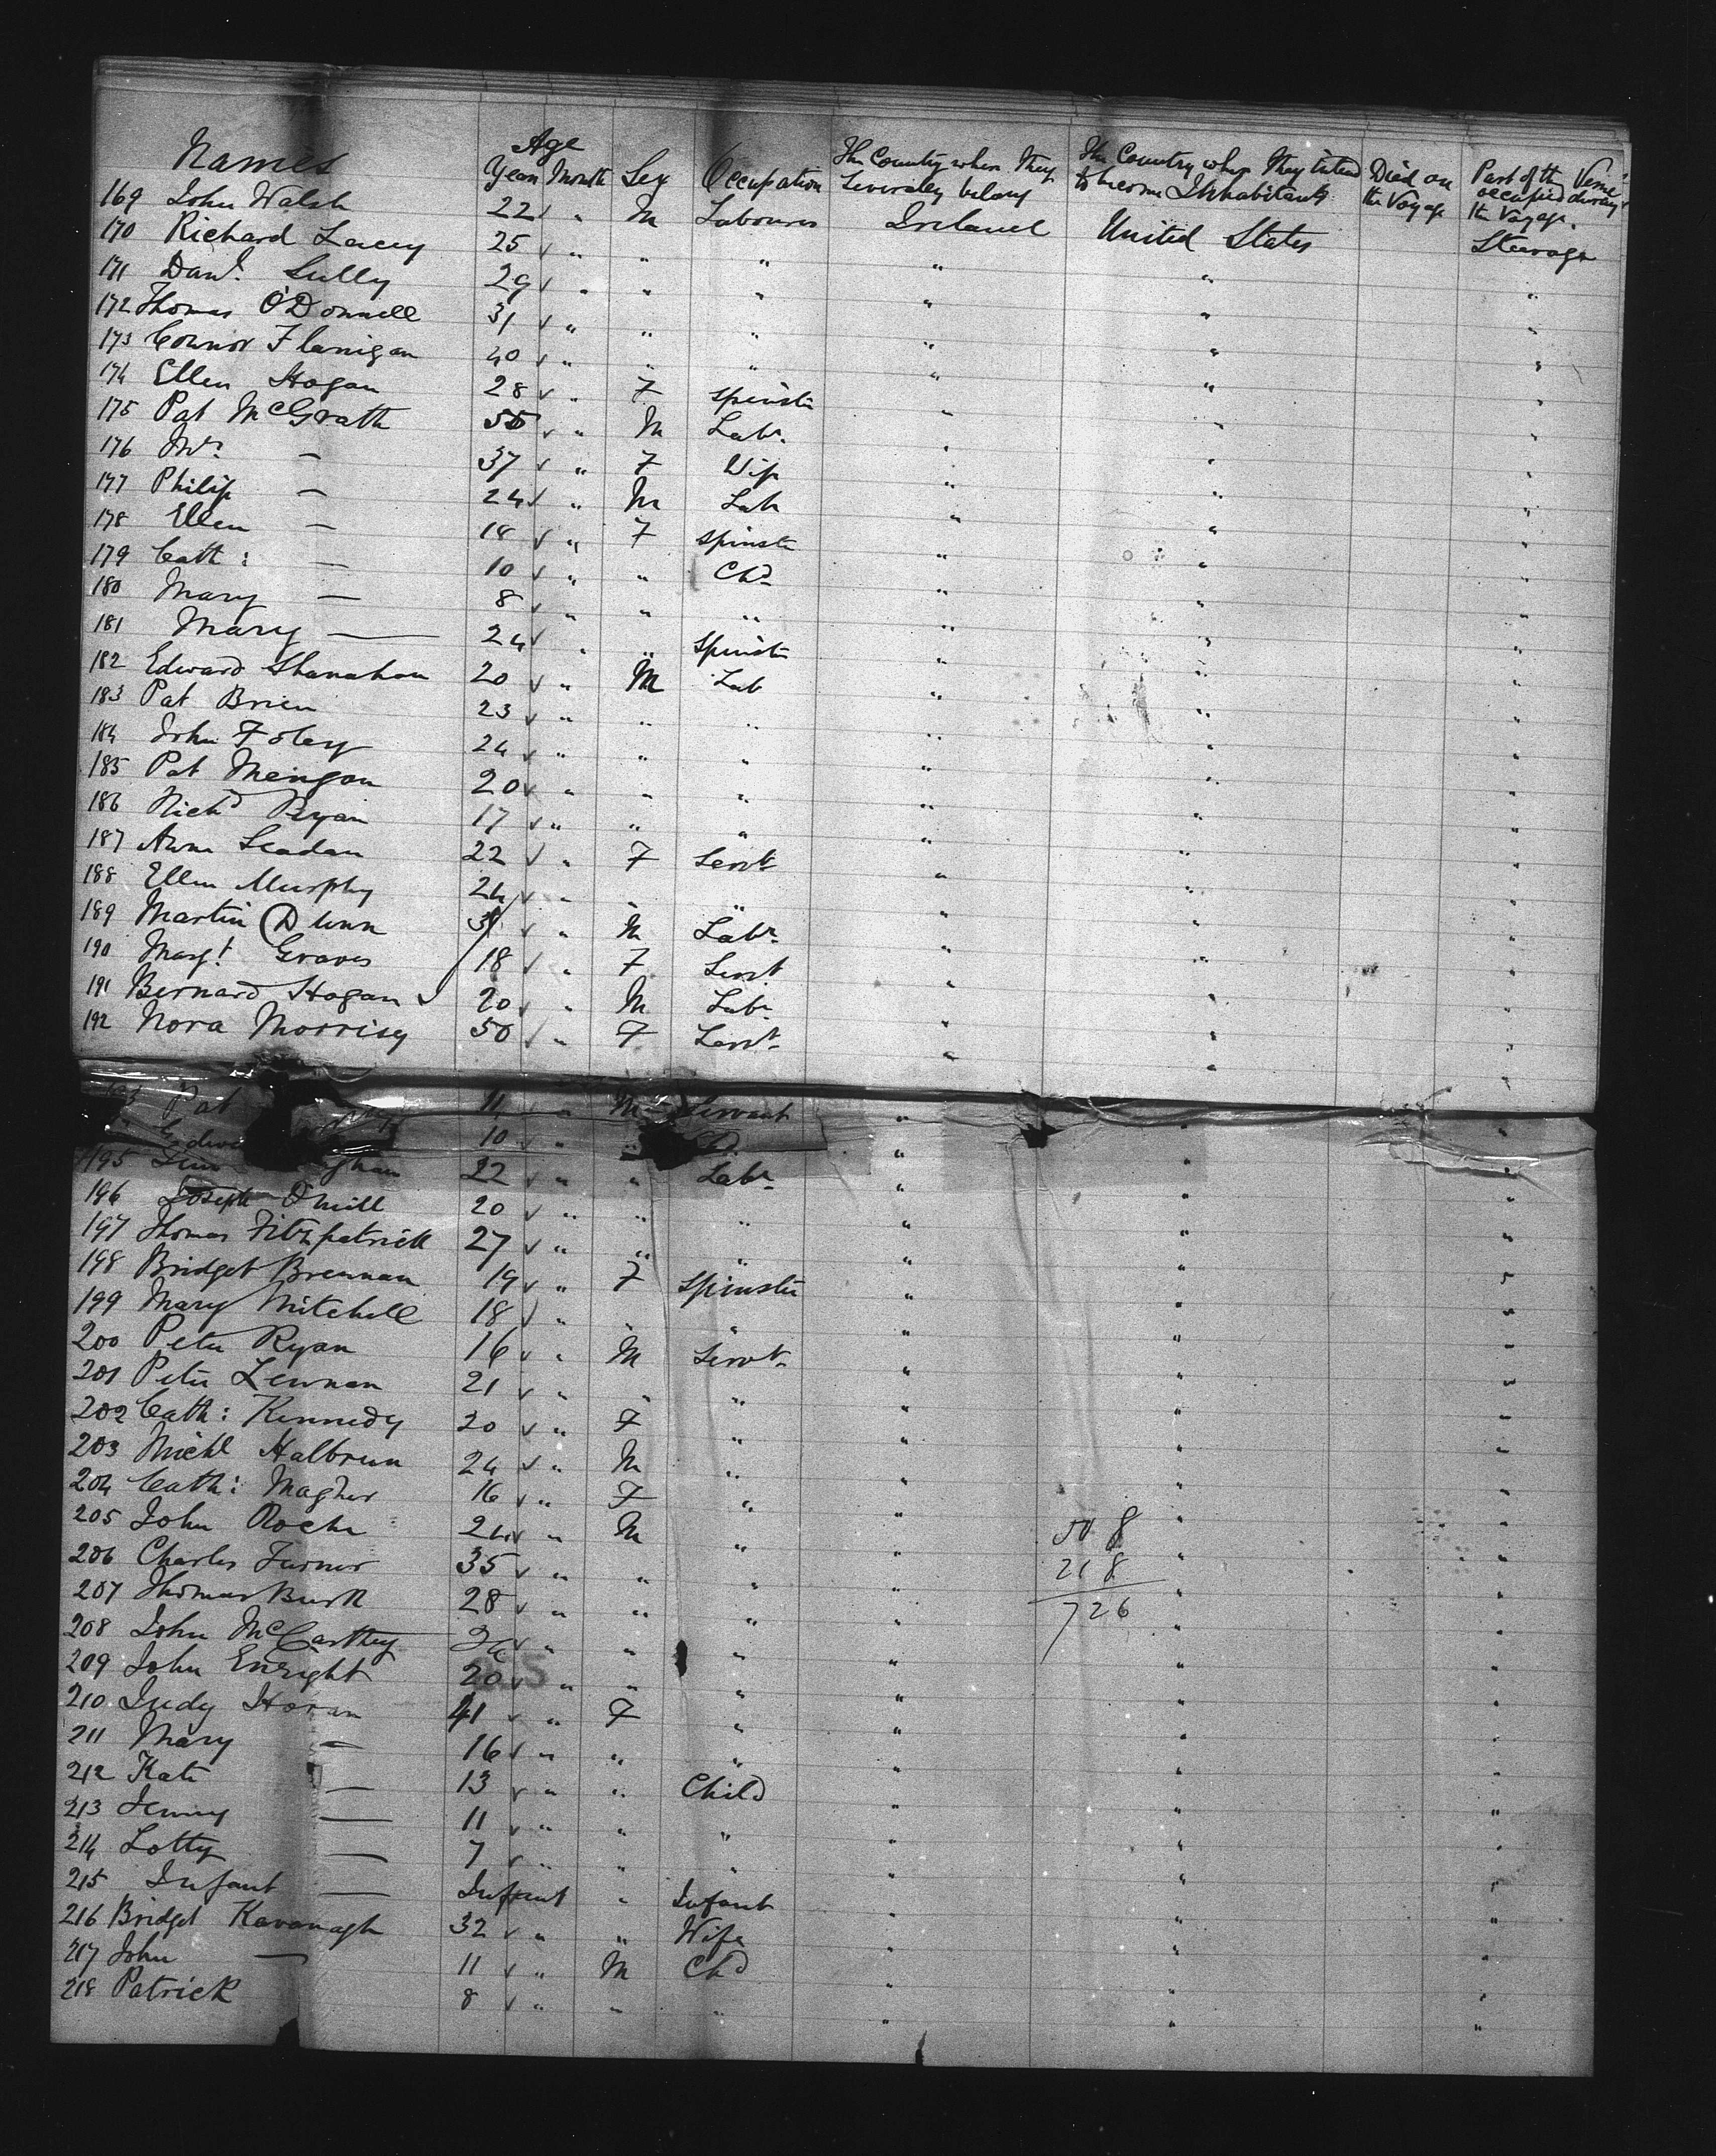 Names Age Years Month Sex Occupation The Country where They Severaley belong The Country where They intend to become Inhabitants Died on the Voyage Part of the Vessel occupied during the Voyage.
169 John Walsh 22 " M Labourer Ireland United States Steerage
170 Richard Lacey 25 " " " " " "
171 Danl. Sully 29 " " " " " "
172 Thomas O'Donnell 31 " " " " " "
173 Connor Flanigan 40 " " " " " "
174 Ellen Hogan 28 " F Spinstr " " "
175 Pat McGrath 55 " M Labr. " " "
176 Mrs. — 37 " F Wife " " "
177 Philip — 24 " M Lab " " "
178 Ellen — 18 " F Spinstr " " "
179 Cath: — 10 " " Chd " " "
180 Mary — 8 " " " " " "
181 Mary — 24 " " Spinstr " " "
182 Edward Shanahan 20 " M Lab " " "
183 Pat Brien 23 " " " " " "
184 John Foley 24 " " " " " "
185 Pat Meingan 20 " " " " " "
186 Richd Ryan 17 " " " " " "
187 Anne Leadan 22 " F Servt " " "
188 Ellen Murphy 24 " " " " " "
189 Martin Dunn " M Labr. " " "
190 Margt. Graves 18 " F Servt " " "
191 Bernard Hogan 20 " M Labr " " "
192 Nora Morrisey 50 " F Servt " " "
Pat 11 " M Servant " " "
10 " " " " "
195 22 " " Labr " " "
196 Joseph O'Neill 20 " " " " " "
197 Thomas Fitzpatrick 27 " " " " " "
198 Bridget Brennan 19 " F Spinster " " "
199 Mary Mitchell 18 " " " " " "
200 Peter Ryan 16 " M Servt " " "
201 Peter Lennan 21 " " " " " "
202 Cath: Kennedy 20 " F " " " "
203 Michl Halbrun 24 " M " " " "
204 Cath: Magher 16 " F " " " "
205 John Roche 24 " M " " " "
508
206 Charles Turner 35 " " " " " "
218
207 Thomas Burk 28 " " " " " "
726
208 John McCarthey " " " " " "
209 John Enright 20 " " " " " "
210 Judy Horan 41 " F " " " "
211 Mary — 16 " " " " " "
212 Kate — 13 " " Child " " "
213 Jenny — 11 " " " " " "
214 Lotty — 7 " " " " " "
215 Infant — Infant " Infant " " "
216 Bridget Kavanagh 32 " " Wife " " "
217 John — 11 " M Chd " " "
218 Patrick 8 " " " " " "